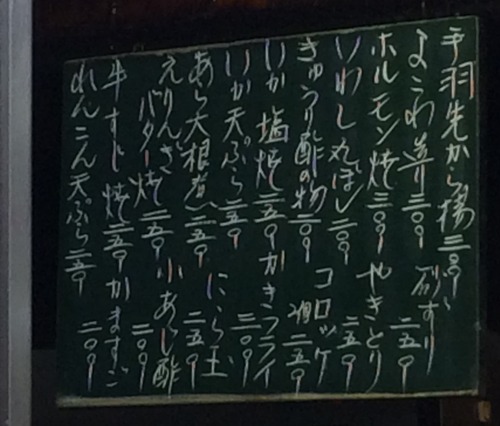 手羽先から揚三〇〇
砂ずり二五〇
よこわ造り三〇〇
ホルモン焼三〇〇
やきとり二五〇
いわし丸ぼし二〇〇
きゅうり酢の物二〇〇
コロッケ2個二五〇
いか塩焼二五〇
かきフライ三〇〇
いか天ぷら二五〇
あら大根煮二五〇
にら玉二五〇
えりんぎ
バター焼二五〇
小あじ酢二〇〇
牛すじ焼二五〇
かますご二〇〇
れんこん天ぷら二五〇